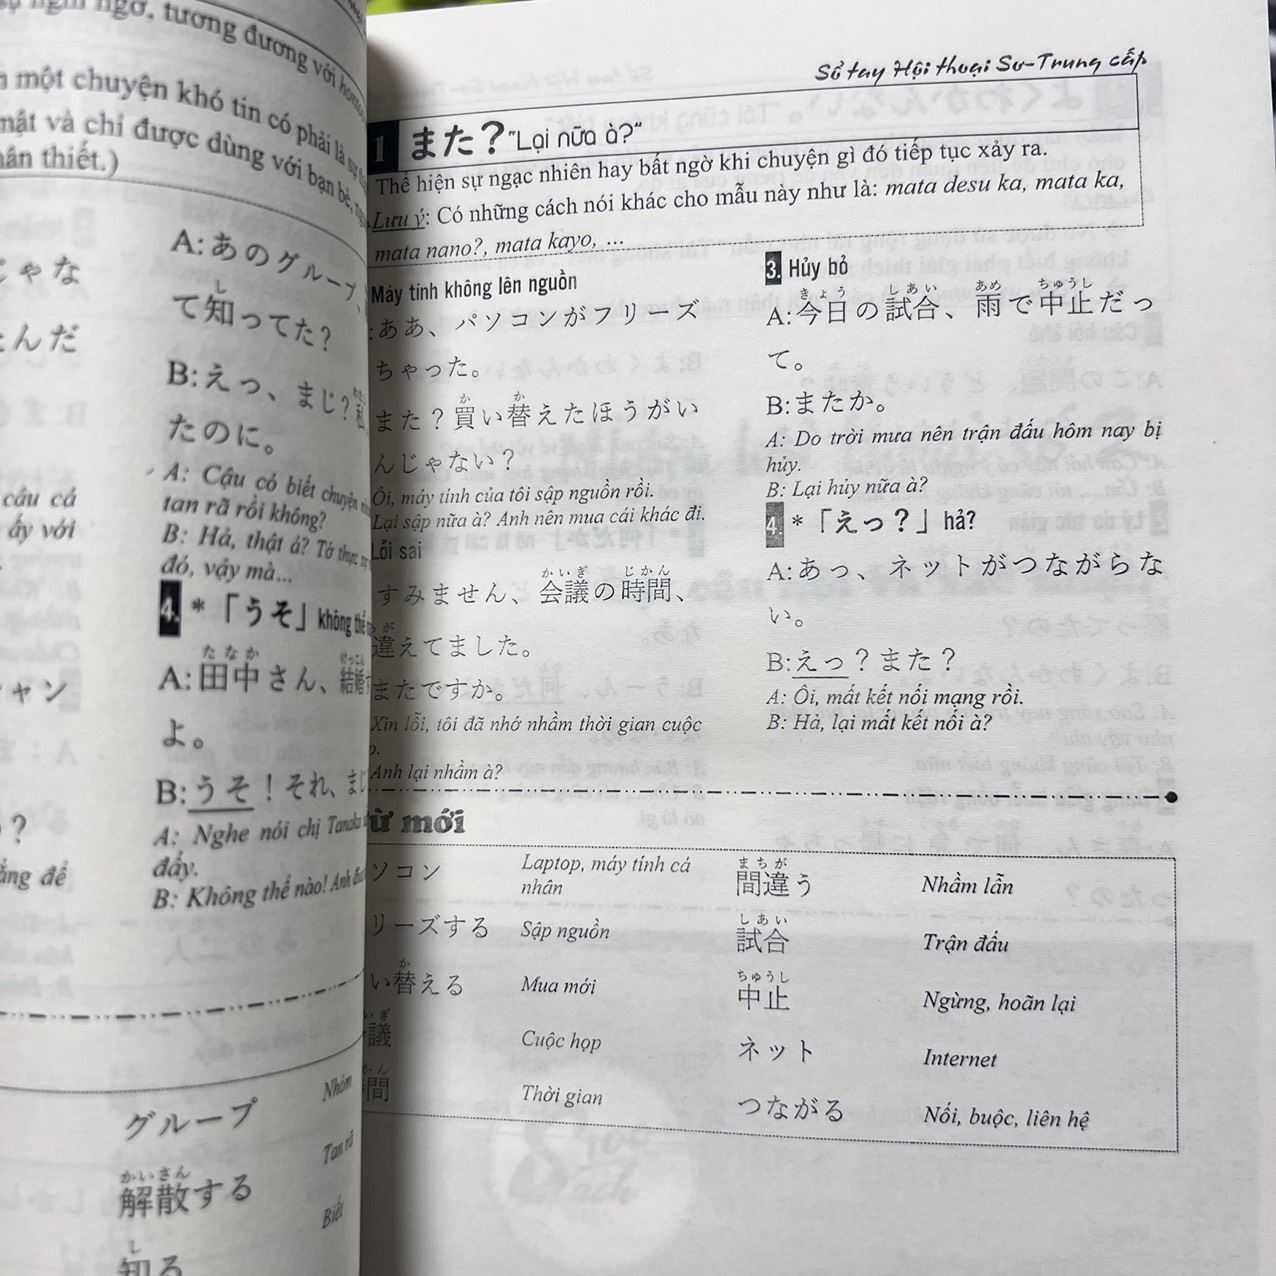 một chuyện khó tin có phải là
mật và chỉ được dùng với bạn bè,
thân thiết.)
A: あのグループ、
て知ってた?
B: えっ、まじ?
たのに。
A: Cậu có biết chuyện
tan rã rồi không?
B: Hả, thật á? Tớ thực
đó, vậy mà...
4. * 「うそ」 không thể
たなか けっこん
A: 田中さん、結婚
よ。
B: うそ!それ、
A: Nghe nói chị Tanaka
đấy.
B: Không thể nào! Anh
câu cá
ấy với
グループ
Nhóm
かいさん
解散する
Tan rã
し
知る
Biết
Sổ tay Hội thoại Sơ-Trung cấp
1 また? "Lại nữa à?"
Thể hiện sự ngạc nhiên hay bất ngờ khi chuyện gì đó tiếp tục xảy ra.
Lưu ý: Có những cách nói khác cho mẫu này như là: mata desu ka, mata ka,
mata nano?, mata kayo, ...
Máy tính không lên nguồn
: ああ、パソコンがフリーズ
ちゃった。
か か
また?買い替えたほうがい
んじゃない?
Ôi, máy tính của tôi sập nguồn rồi.
Lại sập nữa à? Anh nên mua cái khác đi.
Lỗi sai
かいぎ じかん
すみません、会議の時間、
が
違えてました。
またですか。
Xin lỗi, tôi đã nhớ nhầm thời gian cuộc
Anh lại nhầm à?
3. Hủy bỏ
きょう しあい あめ ちゅうし
A: 今日の試合、雨で中止だっ
て。
B: またか。
A: Do trời mưa nên trận đấu hôm nay bị
hủy.
B: Lại hủy nữa à?
4. * 「えっ?」 hả?
A: あっ、ネットがつながらな
い。
B: えっ?また?
A: Ôi, mất kết nối mạng rồi.
B: Hả, lại mất kết nối à?
ừ mới
ソコン
Laptop, máy tính cá
nhân
リーズする
Sập nguồn
か
い替える
Mua mới
いぎ
議
Cuộc họp
かん
間
Thời gian
まちが
間違う
Nhầm lẫn
しあい
試合
Trận đấu
ちゅうし
中止
Ngừng, hoãn lại
ネット
Internet
つながる
Nối, buộc, liên hệ